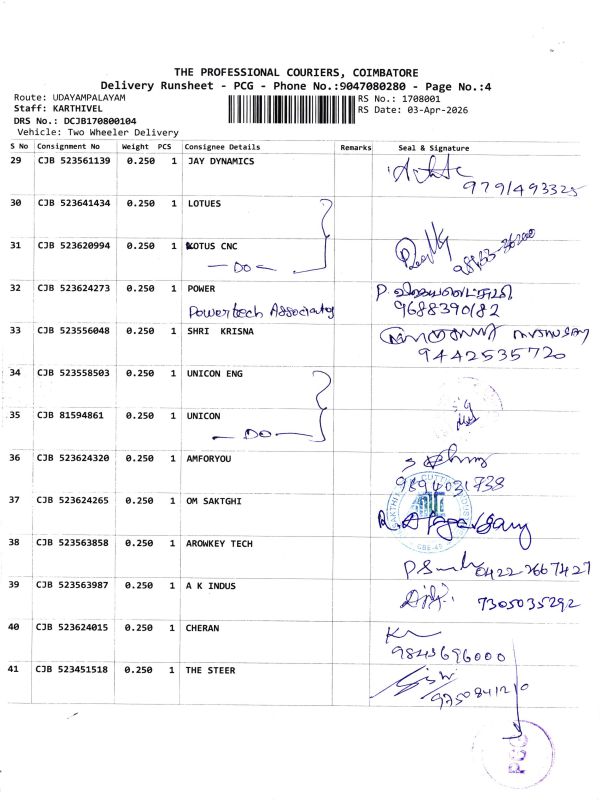 THE PROFESSIONAL COURIERS, COIMBATORE
Delivery Runsheet - PCG - Phone No.:9047080280 - Page No.:4
Route: UDAYAMPALAYAM
Staff: KARTHIVEL
DRS No.: DCJB170800104
Vehicle: Two Wheeler Delivery
RS No.: 1708001
RS Date: 03-Apr-2026
S No Consignment No Weight PCS Consignee Details Remarks Seal & Signature
29 CJB 523561139 0.250 1 JAY DYNAMICS
9791493325
30 CJB 523641434 0.250 1 LOTUES
31 CJB 523620994 0.250 1 LOTUS CNC
— DO —
32 CJB 523624273 0.250 1 POWER
Powertech Associates
9688390182
33 CJB 523556048 0.250 1 SHRI KRISNA
9442535720
34 CJB 523558503 0.250 1 UNICON ENG
35 CJB 81594861 0.250 1 UNICON
— DO —
36 CJB 523624320 0.250 1 AMFORYOU
9894031738
37 CJB 523624265 0.250 1 OM SAKTGHI
38 CJB 523563858 0.250 1 AROWKEY TECH
0422 2667427
39 CJB 523563987 0.250 1 A K INDUS
7305035292
40 CJB 523624015 0.250 1 CHERAN
9843696000
41 CJB 523451518 0.250 1 THE STEER
9750841210
PCG